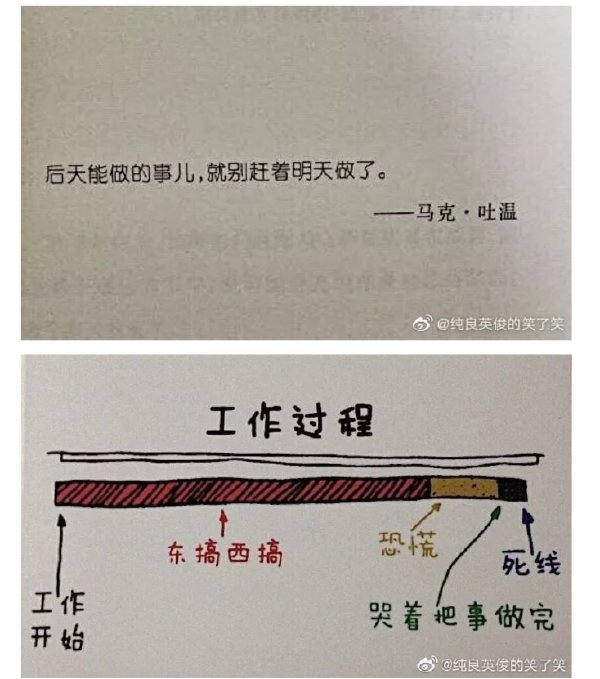 后天能做的事儿，就别赶着明天做了。
——马克·吐温
@纯良英俊的笑了笑
工作过程
东搞西搞
恐慌
死线
哭着把事做完
工作
开始
@纯良英俊的笑了笑